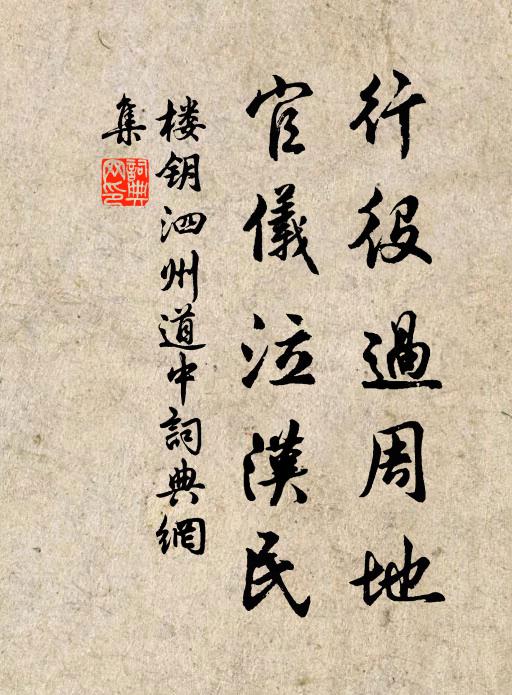 行役過周地
官儀泣漢民
楼钥泗州道中詞典網
集
詞典網印